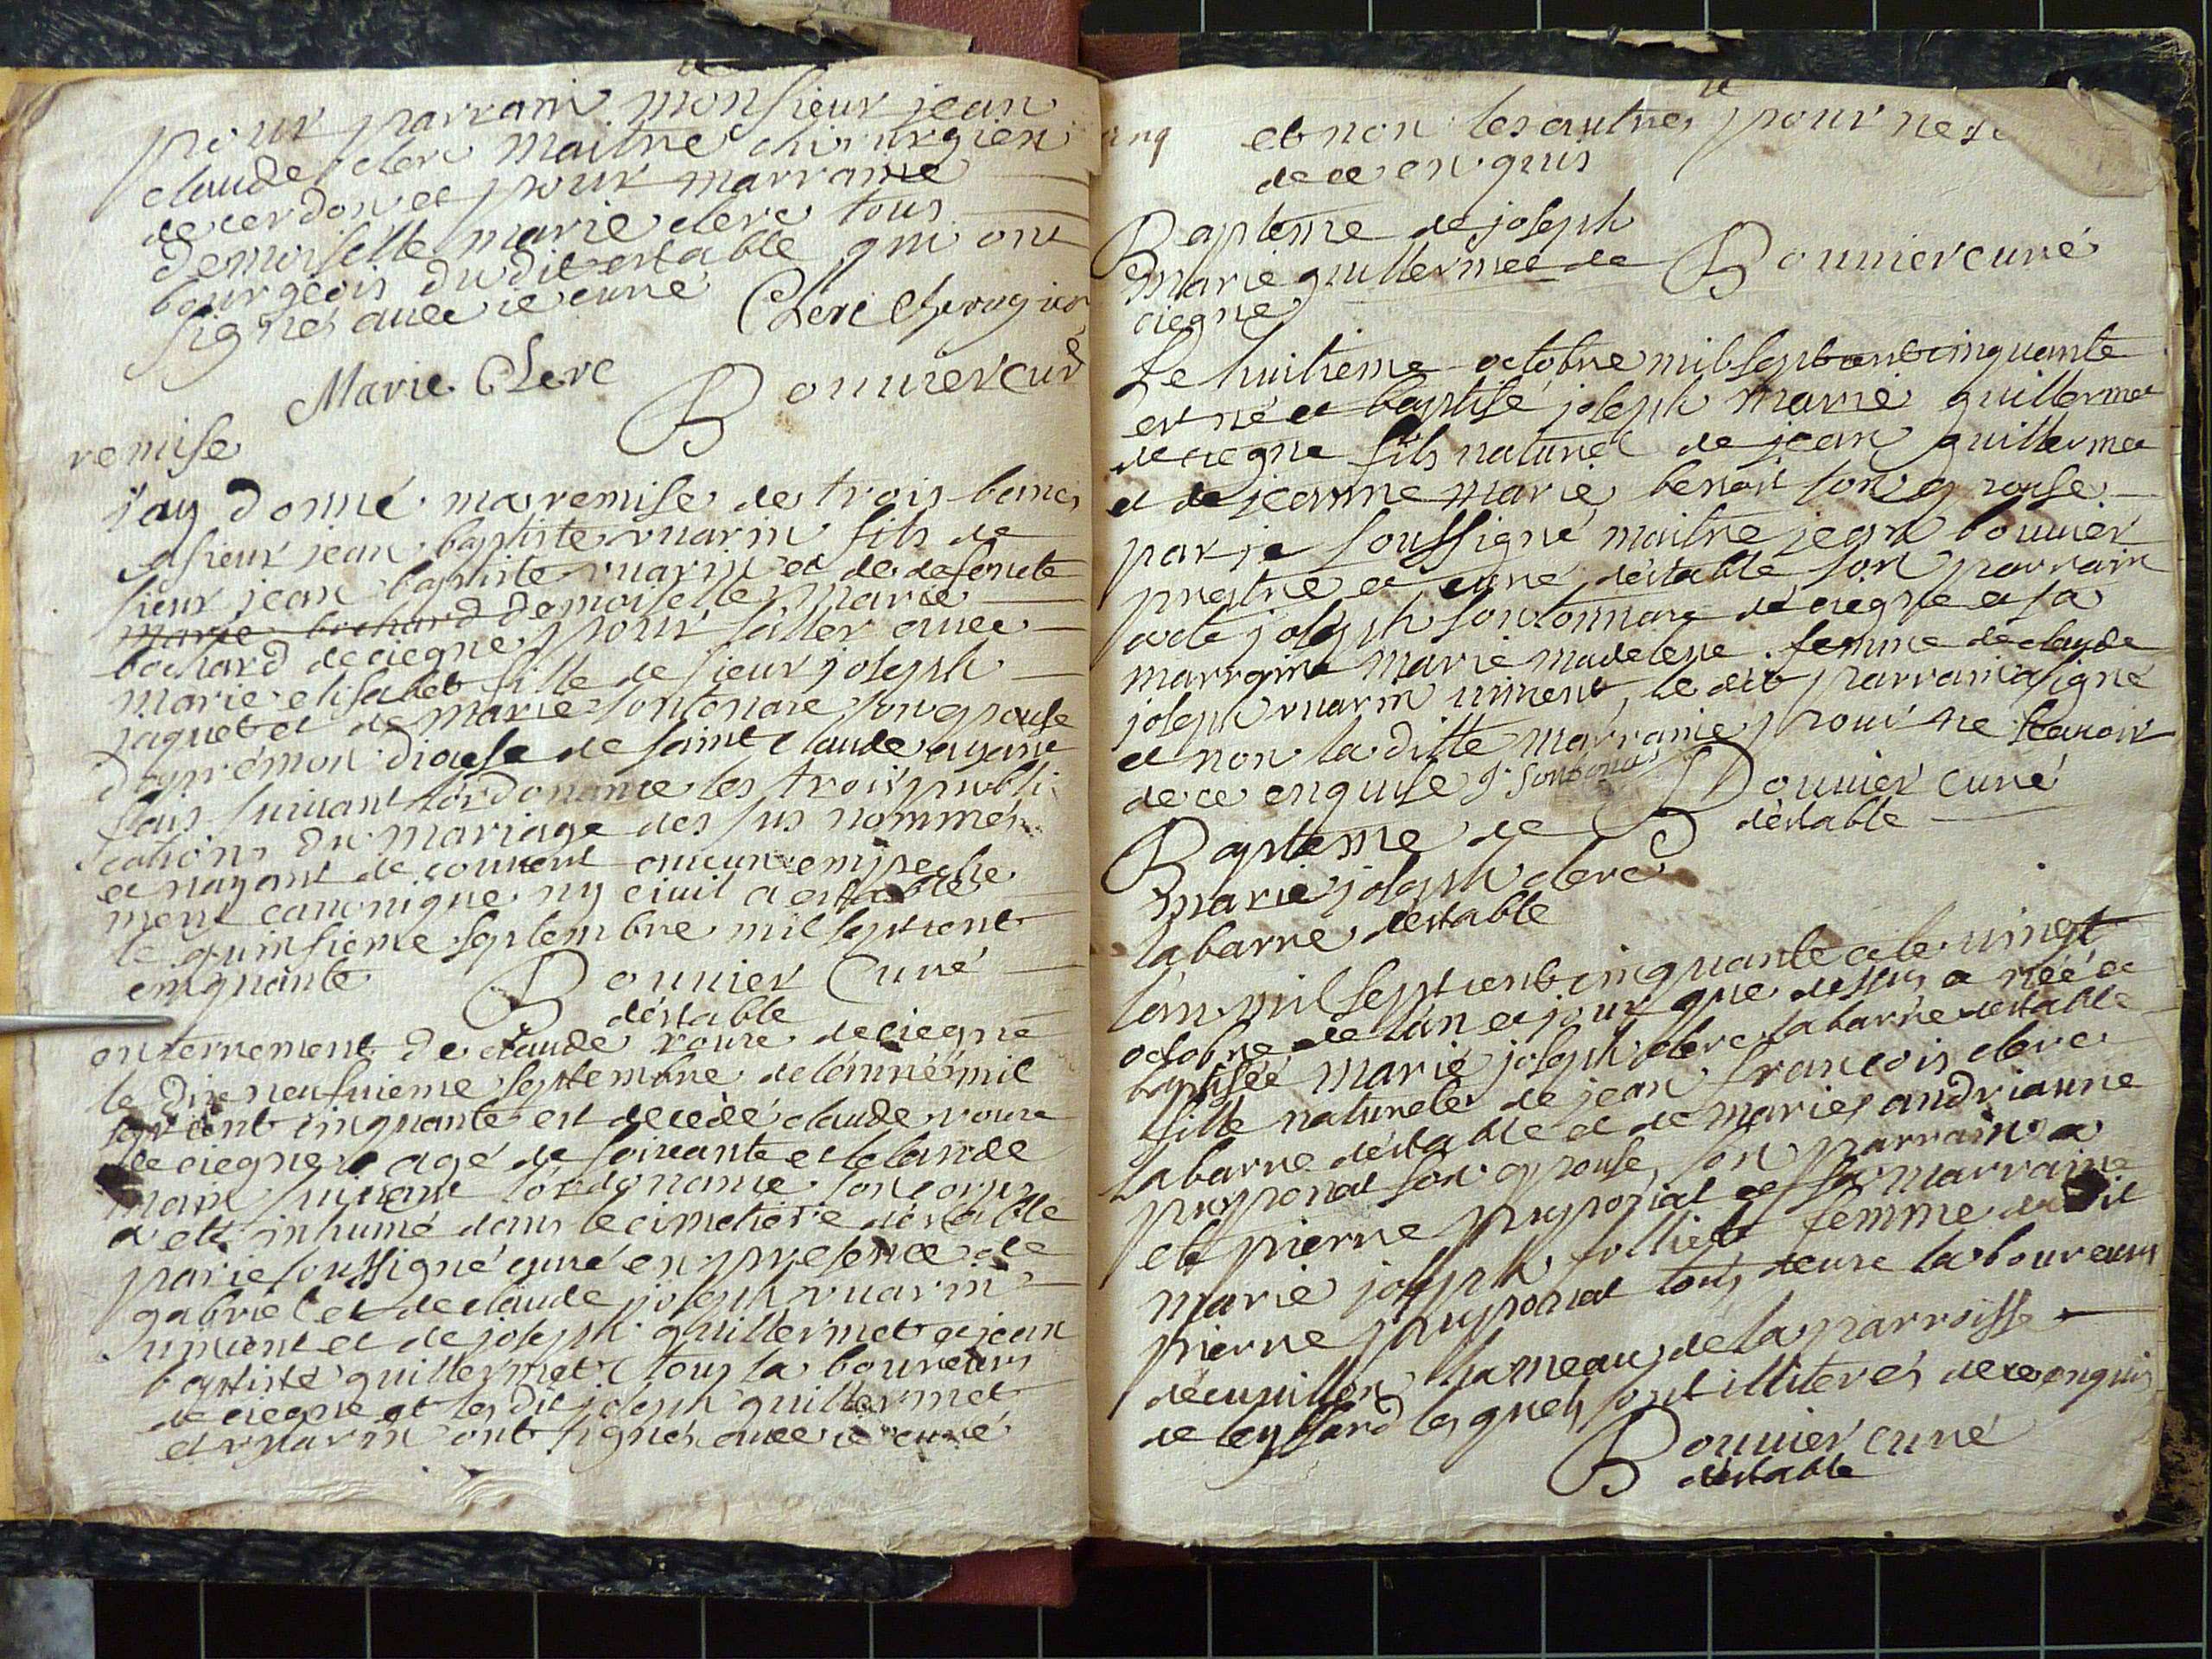 pour parrain monsieur jean
claude clerc maitre chirurgien
de cerdon et pour marraine
demoiselle marie clerc tous
bourgeois du dit estable qui ont
signés avec ie curé
Clerc Chirugien
Marie Clerc
Bouuier curé
remise
j'ay donné ma remise de trois bancs
a sieur jean baptiste ruarin fils de
sieur jean baptiste ruarin et de defuncte
marie bochard demoiselle marie
bochard de ciegne pour faller avec
marie elisabet fille de sieur joseph
jaquet et de marie sontonare son epouse
d'apremon diocese de saint claude ayant
fais suivant l'ordonance les trois publi
cations du mariage des sus nommés
et nayant decouvert aucun empeche
ment canonique ny civil a estable
le quinsieme septembre mil sept cent
cinquante
Bouuier Curé
déstable
enterrement de claude roure de ciegne
le dix neufuieme septembre de l'année mil
sept cent cinquante est decedé claude roure
de ciegne agé de soixante et le lande
main suivant l'ordonance son corps
a esté inhumé dans le cimetiere déstable
par ie soussigné curé en presence de
gabriel et de claude joseph ruarin
niment et de joseph guillermet et jean
baptiste guillermet tous laboureurs
de ciegne et les dit joseph guillermet
et ruarin ont signés avec ie curé
et non les autres pour ne s
de ce enquis
Bapteme de joseph
marie guillermet de
ciegne
Bouuier curé
Le huitieme octobre mil sept cent cinquante
est né et baptisé joseph marie guillermet
de ciegne fils naturel de jean guillermet
et de jeanne marie benoit son epouse
par je soussigné maitre jean bouuier
prestre et curé déstable son parrain
a eté joseph sontonnare de ciegne et sa
marraine marie madelene femme de claude
joseph ruarin niment, le dit parrain a signé
et non la ditte marraine pour ne scauoir
de ce enquise J. Sontonas
Bouuier curé
déstable
Bapteme de
marie joseph clerc
labarre destable
l'an mil sept cent cinquante et le vingt
octobre de l'an et jour que dessus a néé et
baptisée marie joseph clerc labarre destable
fille naturele de jean francois clerc
labarre déstable et de marie andrianne
pupponat son epouse, son parrain a
eté pierre pupponat et sa marraine
marie joseph folliet femme dudit
pierre pupponat tous deux laboureurs
décuuillon hameau de la parroisse
de leyssard lesquels sont illiterés de ce enquis
Bouuier curé
déstable